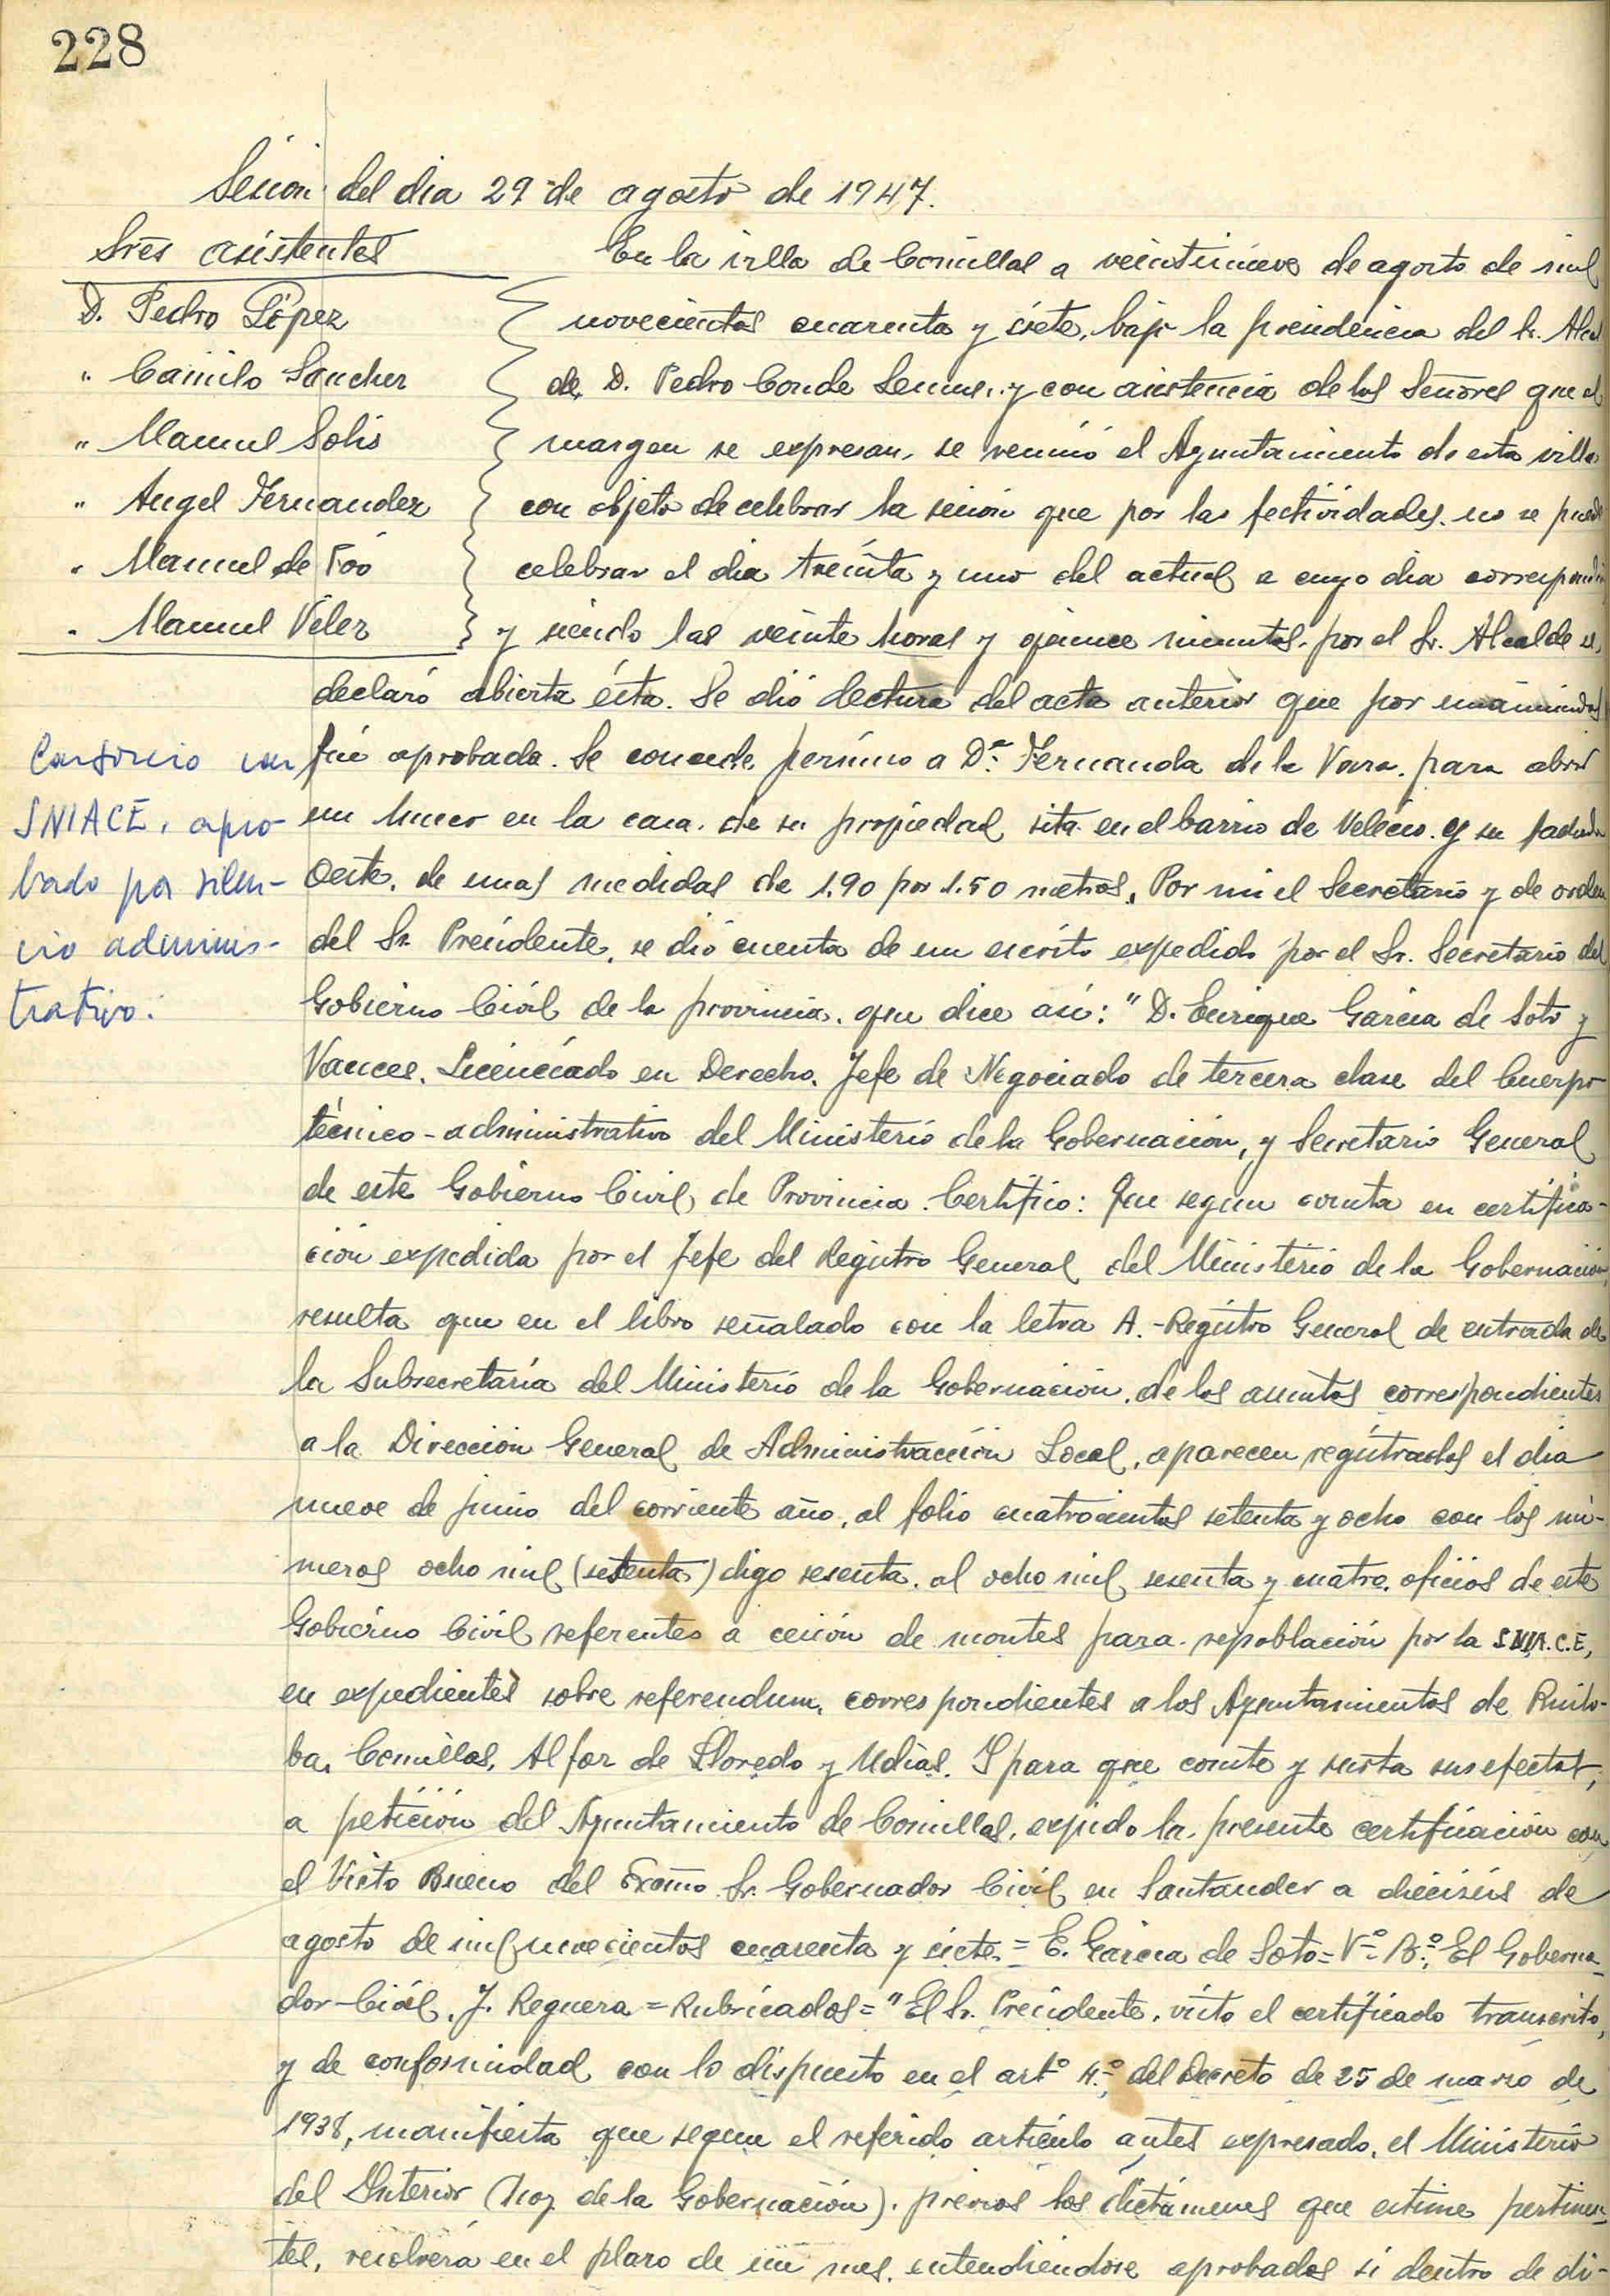 228
Sesion del dia 29 de agosto de 1947.
Sres asistentes
D. Pedro López
" Camilo Sanchez
" Manuel Solis
" Angel Fernandez
" Manuel de Foó
" Manuel Vélez
Consorcio con
SNIACE, apro-
bado por silen-
cio adminis-
trativo.
En la villa de Comillas a veintinueve de agosto de mil
novecientos cuarenta y siete, bajo la presidencia del Sr. Alcal
de, D. Pedro Conde y con asistencia de los Señores que al
margen se expresan, se reunió el Ayuntamiento de esta villa
con objeto de celebrar la sesión que por las festividades no se puede
celebrar el dia treinta y uno del actual a cuyo dia correspondía
y siendo las veinte horas y quince minutos, por el Sr. Alcalde se
declaró abierta ésta. Se dió lectura del acta anterior que por unanimidad
fué aprobada. Se concede permiso a Dª Fernanda de la Vara, para abrir
un hueco en la casa de su propiedad sita en el barrio de Velecio y su fachada
Oeste, de unas medidas de 1.90 por 1.50 metros. Por mi el Secretario y de orden
del Sr. Presidente, se dió cuenta de un escrito expedido por el Sr. Secretario del
Gobierno Civil de la provincia, que dice así: "D. Enrique Garcia de Soto y
Vances, Licenciado en Derecho, Jefe de Negociado de tercera clase del Cuerpo
técnico-administrativo del Ministerio de la Gobernación, y Secretario General
de este Gobierno Civil de Provincia. Certifico: Que segun consta en certifica-
ción expedida por el Jefe del Registro General del Ministerio de la Gobernación,
resulta que en el libro señalado con la letra A.-Registro General de entrada de
la Subsecretaría del Ministerio de la Gobernacion, de los asuntos correspondientes
a la Dirección General de Administracción Local, aparecen registrados el dia
nueve de junio del corriente año, al folio cuatrocientos setenta y ocho con los nú-
meros ocho mil (setenta) digo sesenta, al ocho mil sesenta y cuatro, oficios de este
Gobierno Civil referentes a cesión de montes para repoblación por la S.N.I.A.C.E,
en expedientes sobre referendum, correspondientes a los Ayuntamientos de Ruilo-
ba, Comillas, Alfoz de Lloredo y Udias. Y para que conste y surta sus efectos,
a petición del Ayuntamiento de Comillas, expido la presente certificación con
el Visto Bueno del Excmo. Sr. Gobernador Civil en Santander a dieciséis de
agosto de mil novecientos cuarenta y siete = E. Garcia de Soto = Vº Bº. El Goberna-
dor-Civil. J. Reguera = Rubricados = "El Sr. Presidente, visto el certificado transcrito,
y de conformidad con lo dispuesto en el artº 4.º del Decreto de 25 de marzo de
1938, manifiesta que segun el referido artículo antes expresado, el Ministerio
del Interior (hoy de la Gobernación), previos los dictámenes que estime pertinen-
tes, resolverá en el plazo de un mes, entendiéndose aprobados si dentro de di-